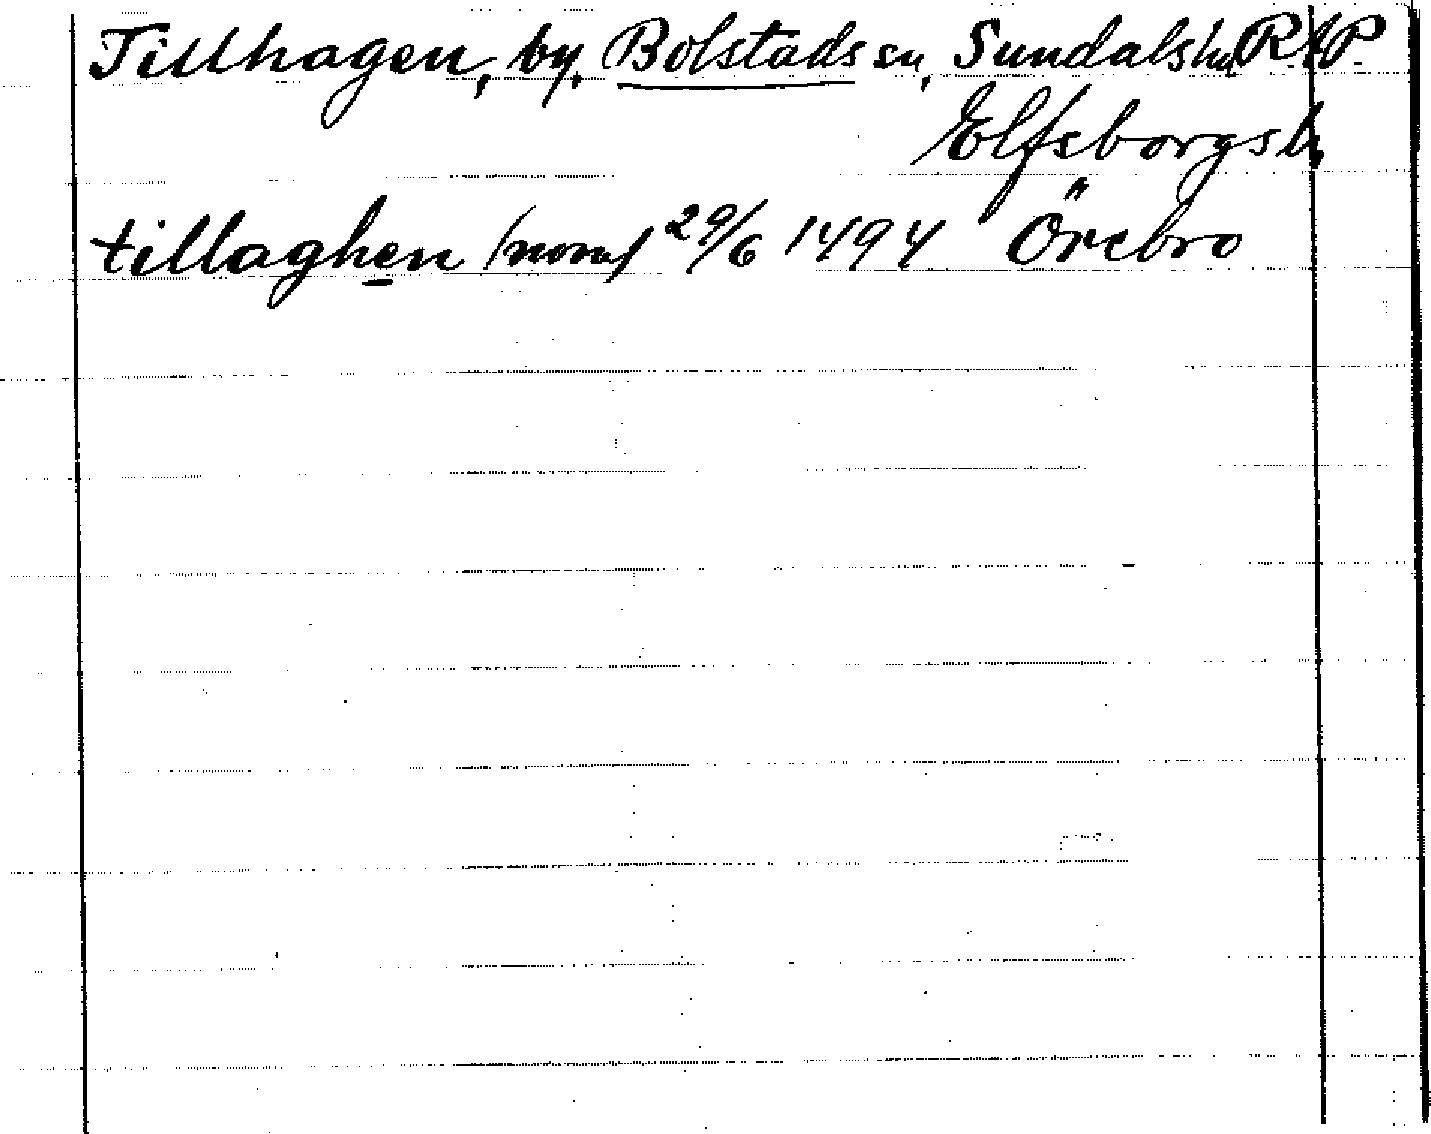 Tillhagen, by, Bolstads sn, Sundals hd R.A.P.
Elfsborgs l.
tillaghen (nom) 29/6 1494 Örebro